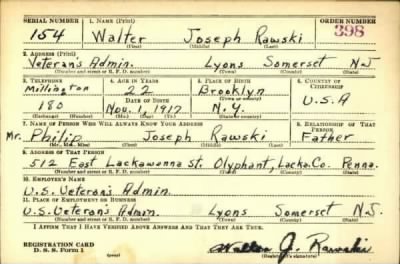 SERIAL NUMBER 1. NAME (Print) ORDER NUMBER
154 Walter Joseph Rawski 398
(First) (Middle) (Last)
2. ADDRESS (Print)
Veteran's Admin. Lyons Somerset N.J.
(Number and street or R. F. D. number) (Town) (County) (State)
3. TELEPHONE 4. AGE IN YEARS 5. PLACE OF BIRTH 6. COUNTRY OF CITIZENSHIP
Millington 22 Brooklyn
DATE OF BIRTH (Town or county) U.S.A
180 Nov. 1, 1917 N.Y.
(Exchange) (Number) (Mo.) (Day) (Yr.) (State or country)
7. NAME OF PERSON WHO WILL ALWAYS KNOW YOUR ADDRESS 8. RELATIONSHIP OF THAT PERSON
Mr. Philip Joseph Rawski Father
(Mr., Mrs., Miss) (First) (Middle) (Last)
9. ADDRESS OF THAT PERSON
512 East Lackawanna St. Olyphant, Lacka.Co. Penna.
(Number and street or R. F. D. number) (Town) (County) (State)
10. EMPLOYER'S NAME
U.S. Veteran's Admin.
11. PLACE OF EMPLOYMENT OR BUSINESS
U.S. Veteran's Admin. Lyons Somerset N.J.
(Number and street or R. F. D. number) (Town) (County) (State)
I AFFIRM THAT I HAVE VERIFIED ABOVE ANSWERS AND THAT THEY ARE TRUE.
REGISTRATION CARD
D. S. S. Form 1 (over) Walter J. Rawski
(Registrant's signature)